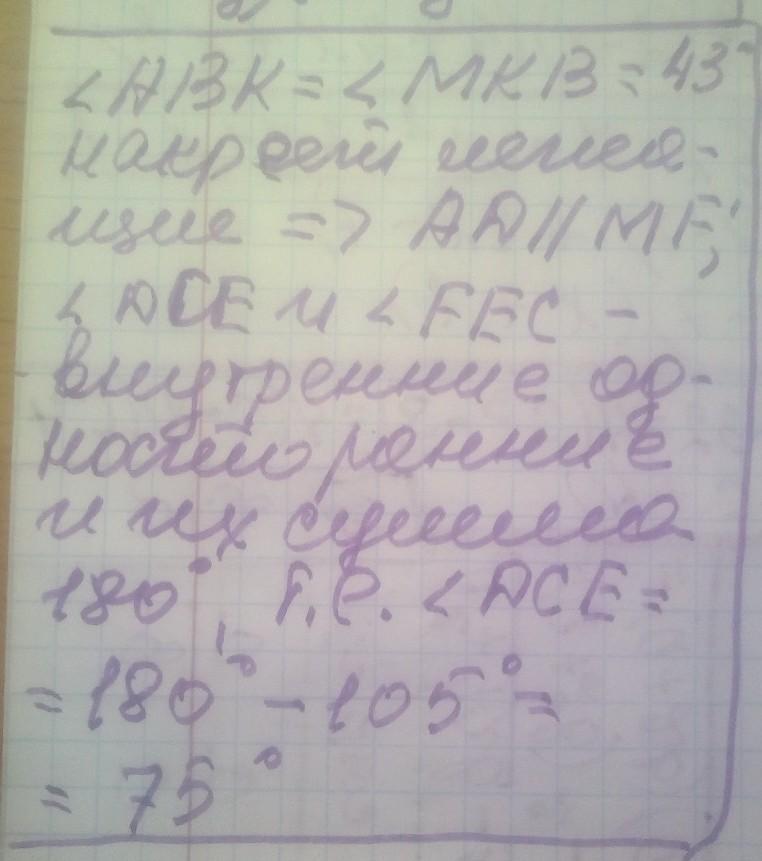 ∠ABK = ∠MKB = 43°
накрест лежа-
щие => AD // MF,
∠DCE и ∠FEC -
внутренние од-
носторонние
и их сумма
180°, т.е. ∠DCE =
= 180° - 105° =
= 75°